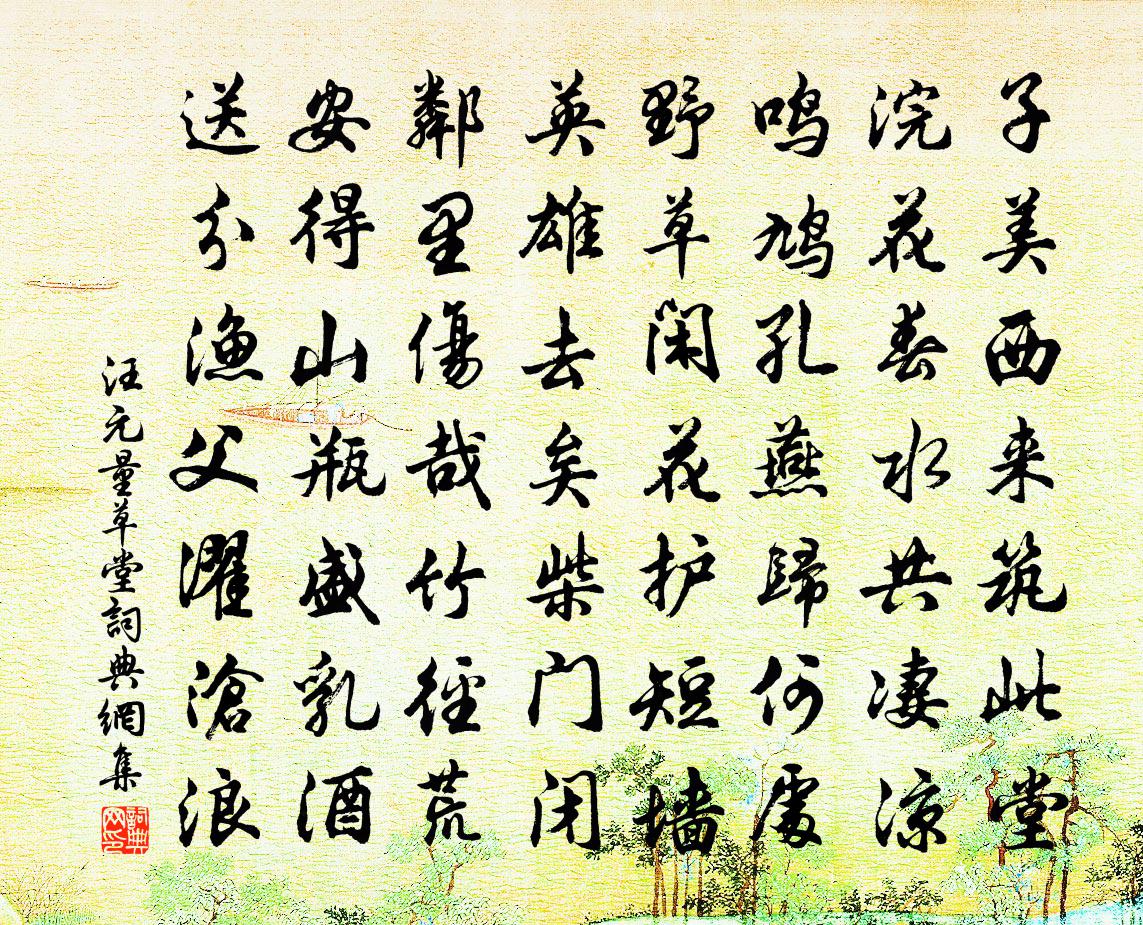 子美西来筑此堂
浣花春水共凄凉
鸣鸠孔燕歸何處
野草闲花护短墙
英雄去矣柴门闭
鄰里傷哉竹径荒
安得山瓶盛乳酒
送分渔父濯滄浪
汪元量草堂詞典網集
詞典网印